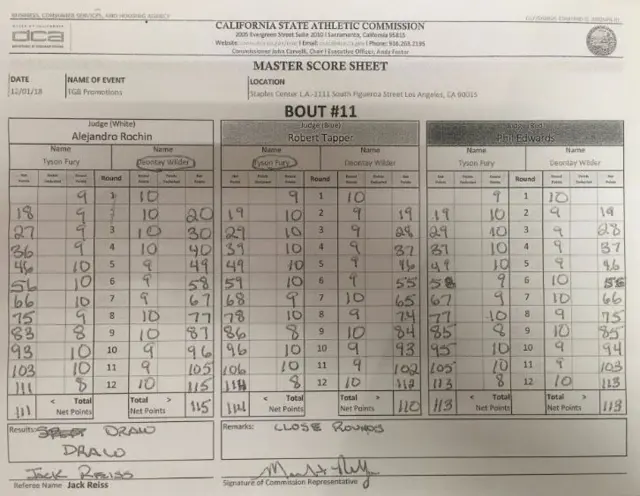 BUSINESS, CONSUMER SERVICES, AND HOUSING AGENCY
dca
CALIFORNIA STATE ATHLETIC COMMISSION
2005 Evergreen Street Suite 2010 | Sacramento, California 95815
Commissioner John Carvelli, Chair | Executive Officer, Andy Foster
MASTER SCORE SHEET
DATE NAME OF EVENT LOCATION
12/01/18 TGB Promotions Staples Center L.A.-1111 South Figueroa Street Los Angeles, CA 90015
BOUT #11
Judge (White) Judge (Blue)
Alejandro Rochin Robert Tapper Phil Edwards
Name Name Name Name Name Name
Tyson Fury Deontay Wilder Tyson Fury Deontay Wilder Tyson Fury Deontay Wilder
Net Points Points Deducted Round Points Round Round Points Points Deducted Net Points Net Points Points Deducted Round Points Round Round Points Points Deducted Net Points Net Points Points Deducted Round Points Round Round Points Points Deducted Net Points
9 1 10 9 1 10 9 1 10
18 9 2 10 20 19 10 2 9 19 19 10 2 9 19
27 9 3 10 30 29 10 3 9 28 29 10 3 9 28
36 9 4 10 40 39 10 4 9 37 39 10 4 9 37
46 10 5 9 49 49 10 5 9 46 49 10 5 9 46
56 10 6 9 58 59 10 6 9 55 58 9 6 10 56
66 10 7 9 67 68 9 7 10 65 67 9 7 10 66
75 9 8 10 77 78 10 8 9 74 77 10 8 9 75
83 8 9 10 87 86 8 9 10 84 85 8 9 10 85
93 10 10 9 96 96 10 10 9 93 95 10 10 9 94
103 10 11 9 105 106 10 11 9 102 105 10 11 9 103
111 8 12 10 115 114 8 12 10 112 113 8 12 10 113
< Total Total > < Total Total > < Total Total >
111 Net Points Net Points 115 114 Net Points Net Points 110 113 Net Points Net Points 113
Results: DRAW Remarks: CLOSE ROUNDS
DRAW
JACK REISS
Referee Name Jack Reiss Signature of Commission Representative